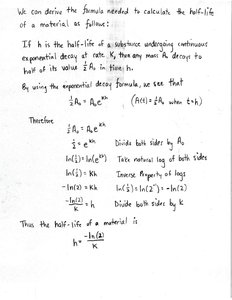 We can derive the formula needed to calculate the half-life
of a material as follows:
If h is the half-life of a substance undergoing continuous
exponential decay at rate K, then any mass A₀ decays to
half of its value ½A₀ in time h.
By using the exponential decay formula, we see that
½A₀ = A₀e^(Kh) (A(t) = ½A₀ when t=h)
Therefore
½A₀ = A₀e^(Kh)
½ = e^(Kh) Divide both sides by A₀
ln(½) = ln(e^(Kh)) Take natural log of both sides
ln(½) = Kh Inverse Property of logs
-ln(2) = Kh ln(½) = ln(2⁻¹) = -ln(2)
-ln(2)/K = h Divide both sides by K
Thus the half-life of a material is
h = -ln(2)/K